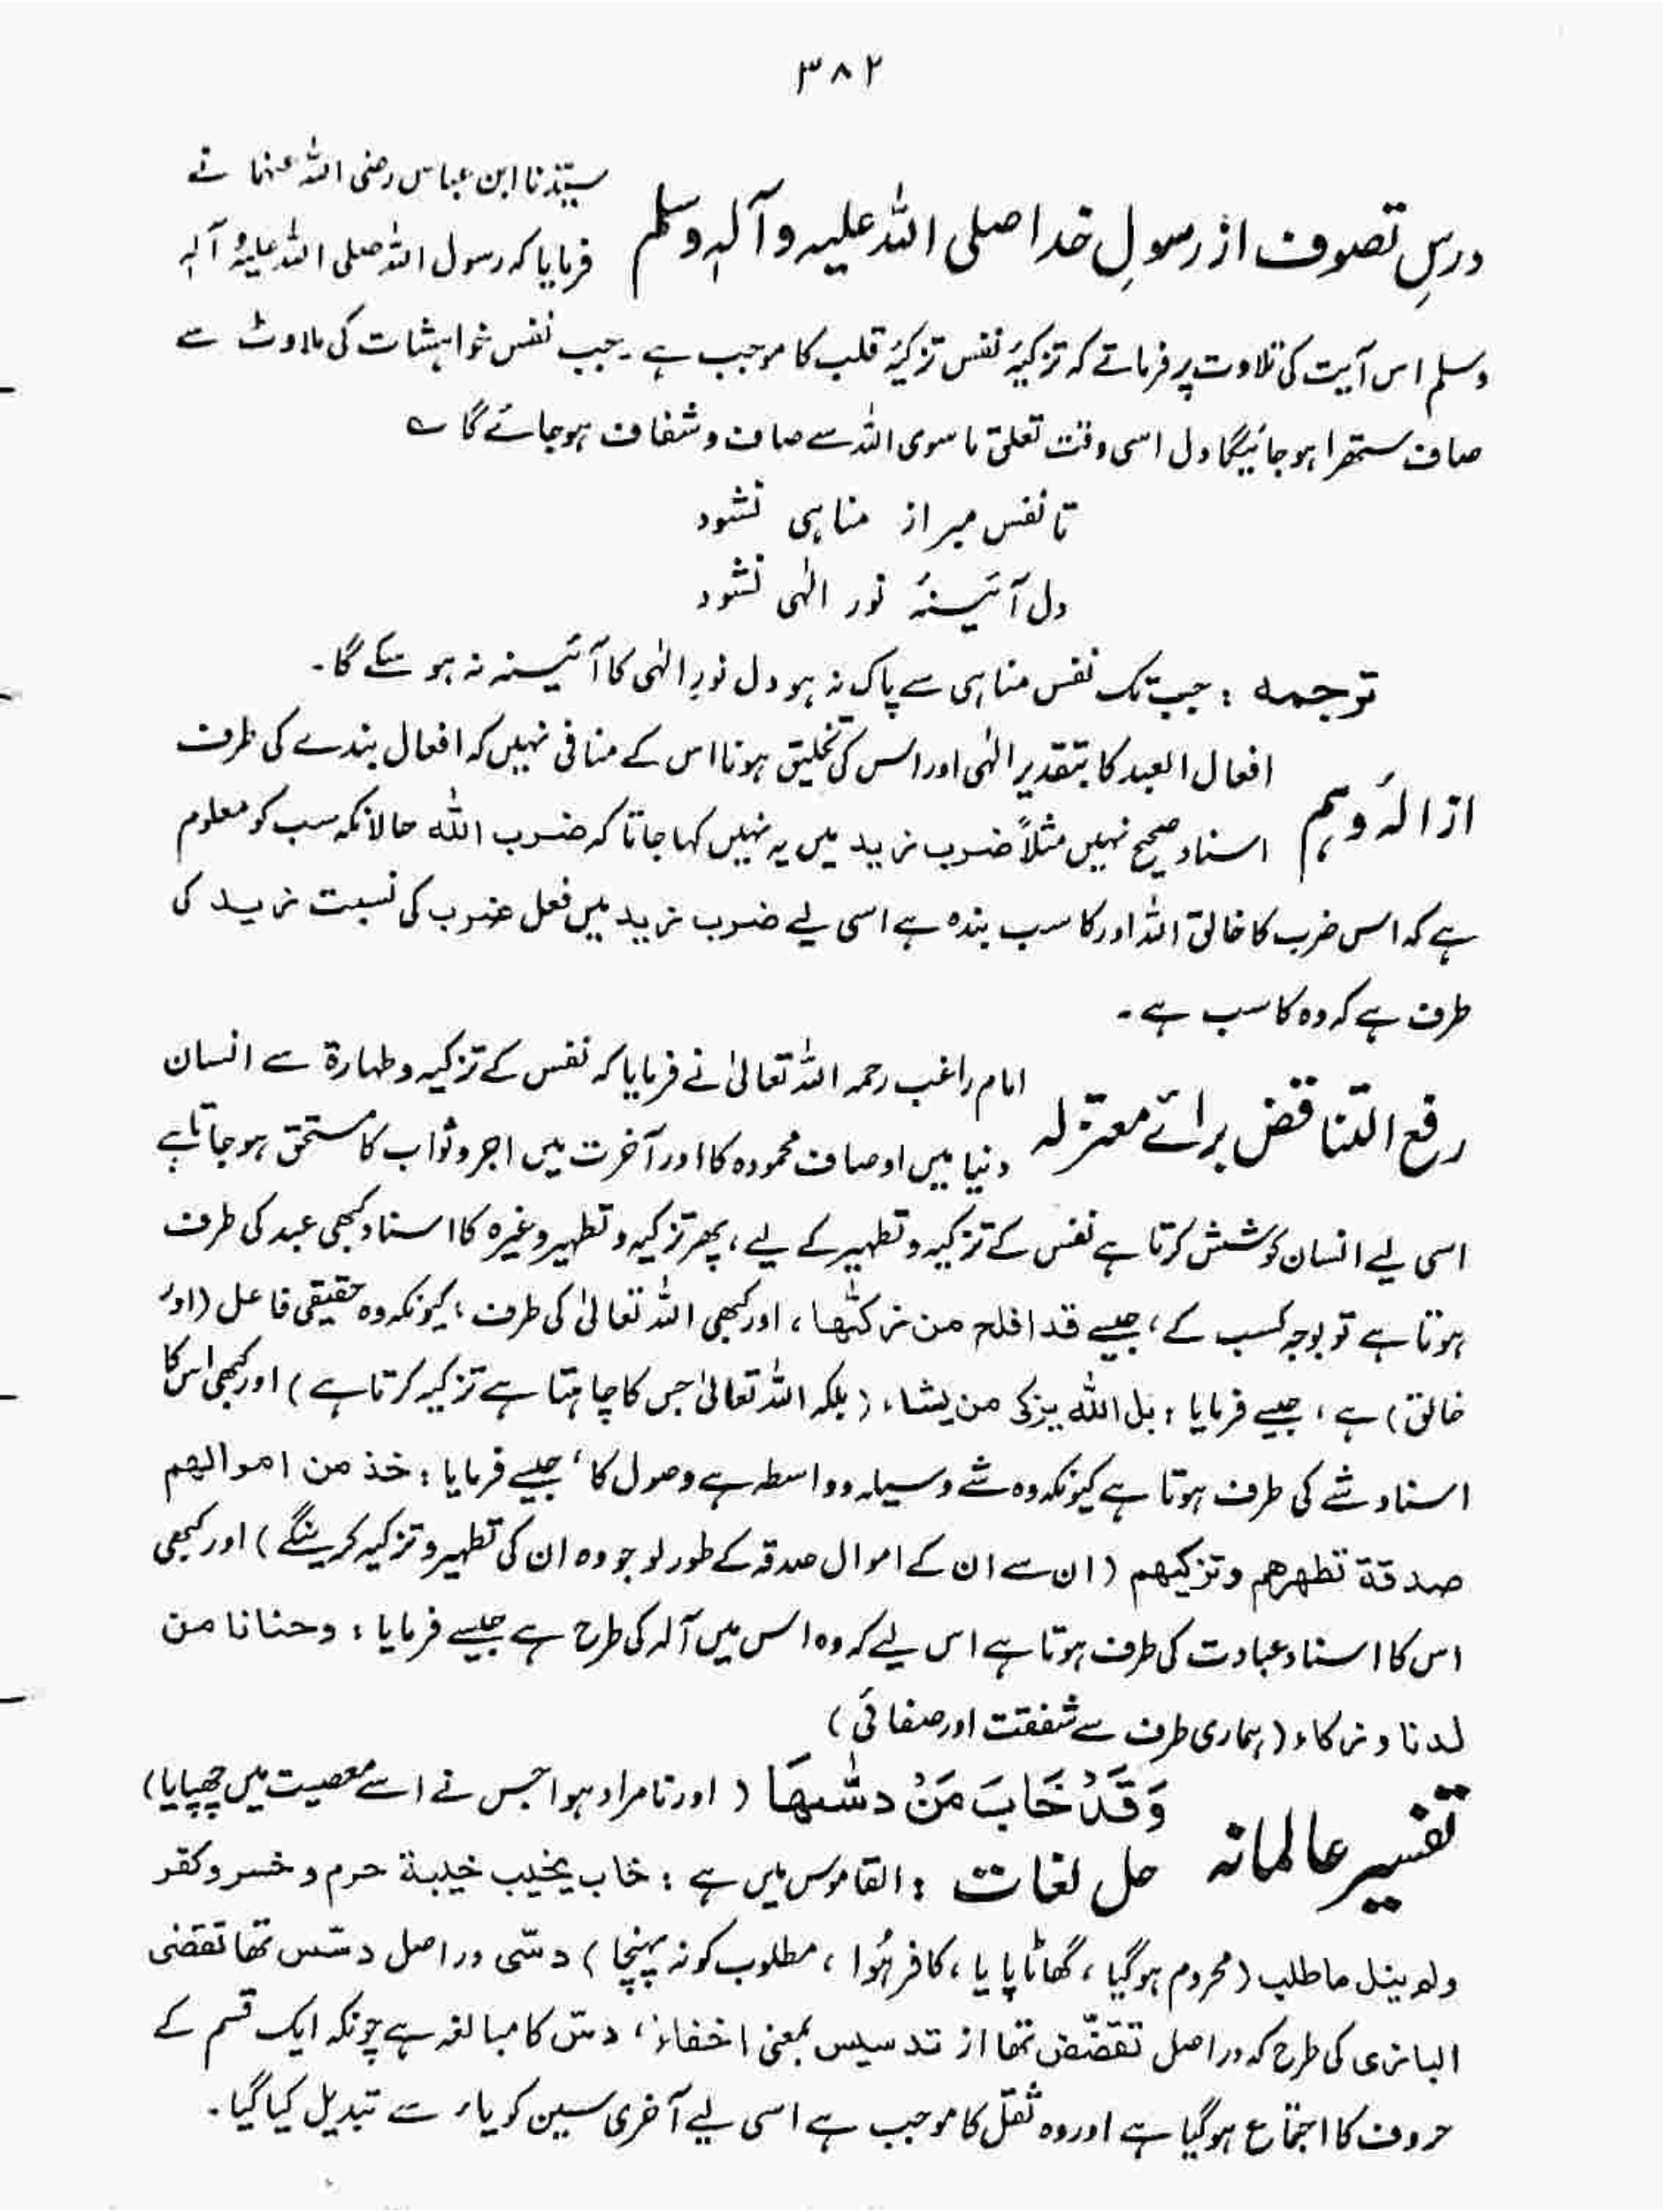 ۳۸۲
درسِ تصوف از رسولِ خدا صلی اللہ علیہ وآلہٖ وسلم سیّدنا ابن عباس رضی اللہ عنہما نے
فرمایا کہ رسول اللہ صلی اللہ علیہ وآلہٖ
وسلم اس آیت کی تلاوت پر فرماتے کہ تزکیۂ نفس تزکیۂ قلب کا موجب ہے۔ جب نفس خواہشات کی ملاوٹ سے
صاف ستھرا ہو جائیگا دل اسی وقت تعلق ما سوی اللہ سے صاف و شفاف ہو جائے گا ؎
تا نفس مبرا ز مناہی نشود
دل آئیسنۂ نور الٰہی نشود
توجمہ : جب تک نفس مناہی سے پاک نہ ہو دل نورِ الٰہی کا آئیسنہ نہ ہو سکے گا۔
ازالۂ وہم افعال العبد کا بتقدیر الٰہی اور اس کی تخلیق ہونا اس کے منافی نہیں کہ افعال بندے کی طرف
اسناد صحیح نہیں مثلاً ضرب زید میں یہ نہیں کہا جاتا کہ ضرب اللہ حالانکہ سب کو معلوم
ہے کہ اس ضرب کا خالق اللہ اور کاسب بندہ ہے اسی لیے ضرب زید میں فعل ضرب کی نسبت زید کی
طرف ہے کہ وہ کاسب ہے۔
رفع التناقض برائے معتزلہ امام راغب رحمہ اللہ تعالیٰ نے فرمایا کہ نفس کے تزکیہ و طہارۃ سے انسان
دنیا میں اوصاف محمودہ کا اور آخرت میں اجر و ثواب کا مستحق ہو جاتا ہے
اسی لیے انسان کوشش کرتا ہے نفس کے تزکیہ و تطہیر کے لیے، پھر تزکیہ و تطہیر وغیرہ کا اسناد کبھی عبد کی طرف
ہوتا ہے تو بوجہ کسب کے، جیسے قد افلح من زکّٰھا، اور کبھی اللہ تعالیٰ کی طرف ؛ کیونکہ وہ حقیقی فاعل (اور
خالق) ہے، جیسے فرمایا : بل اللہ یزکی من یشاء (بلکہ اللہ تعالیٰ جس کا چاہتا ہے تزکیہ کرتا ہے) اور کبھی اس کا
اسناد شے کی طرف ہوتا ہے کیونکہ وہ شے وسیلہ و واسطہ ہے وصول کا، جیسے فرمایا : خذ من اموالھم
صدقۃ تطھرھم وتزکیھم (ان سے ان کے اموال صدقہ کے طور لو جو وہ ان کی تطہیر و تزکیہ کرینگے) اور کبھی
اس کا اسناد عبادت کی طرف ہوتا ہے اس لیے کہ وہ اس میں آلہ کی طرح ہے جیسے فرمایا : وحنانا من
لدنا وزکاء (ہماری طرف سے شفقت اور صفائی)
تفسیر عالمانہ وَقَدْ خَابَ مَنْ دسّٰىھَا (اور نامراد ہوا جس نے اسے معصیت میں چھپایا)
حل لغات : القاموس میں ہے : خاب یخیب خیبۃ حرم و خسر و کفر
ولم ینل ما طلب (محروم ہو گیا، گھاٹا پایا، کافر ہُوا، مطلوب کو نہ پہنچا) دسّی دراصل دسّس تھا تقضی
البازی کی طرح کہ دراصل تقضّض تھا از تدسیس بمعنی اخفاء، دسّ کا مبالغہ ہے چونکہ ایک قسم کے
حروف کا اجتماع ہو گیا ہے اور وہ ثقل کا موجب ہے اسی لیے آخری سین کو یاء سے تبدیل کیا گیا۔